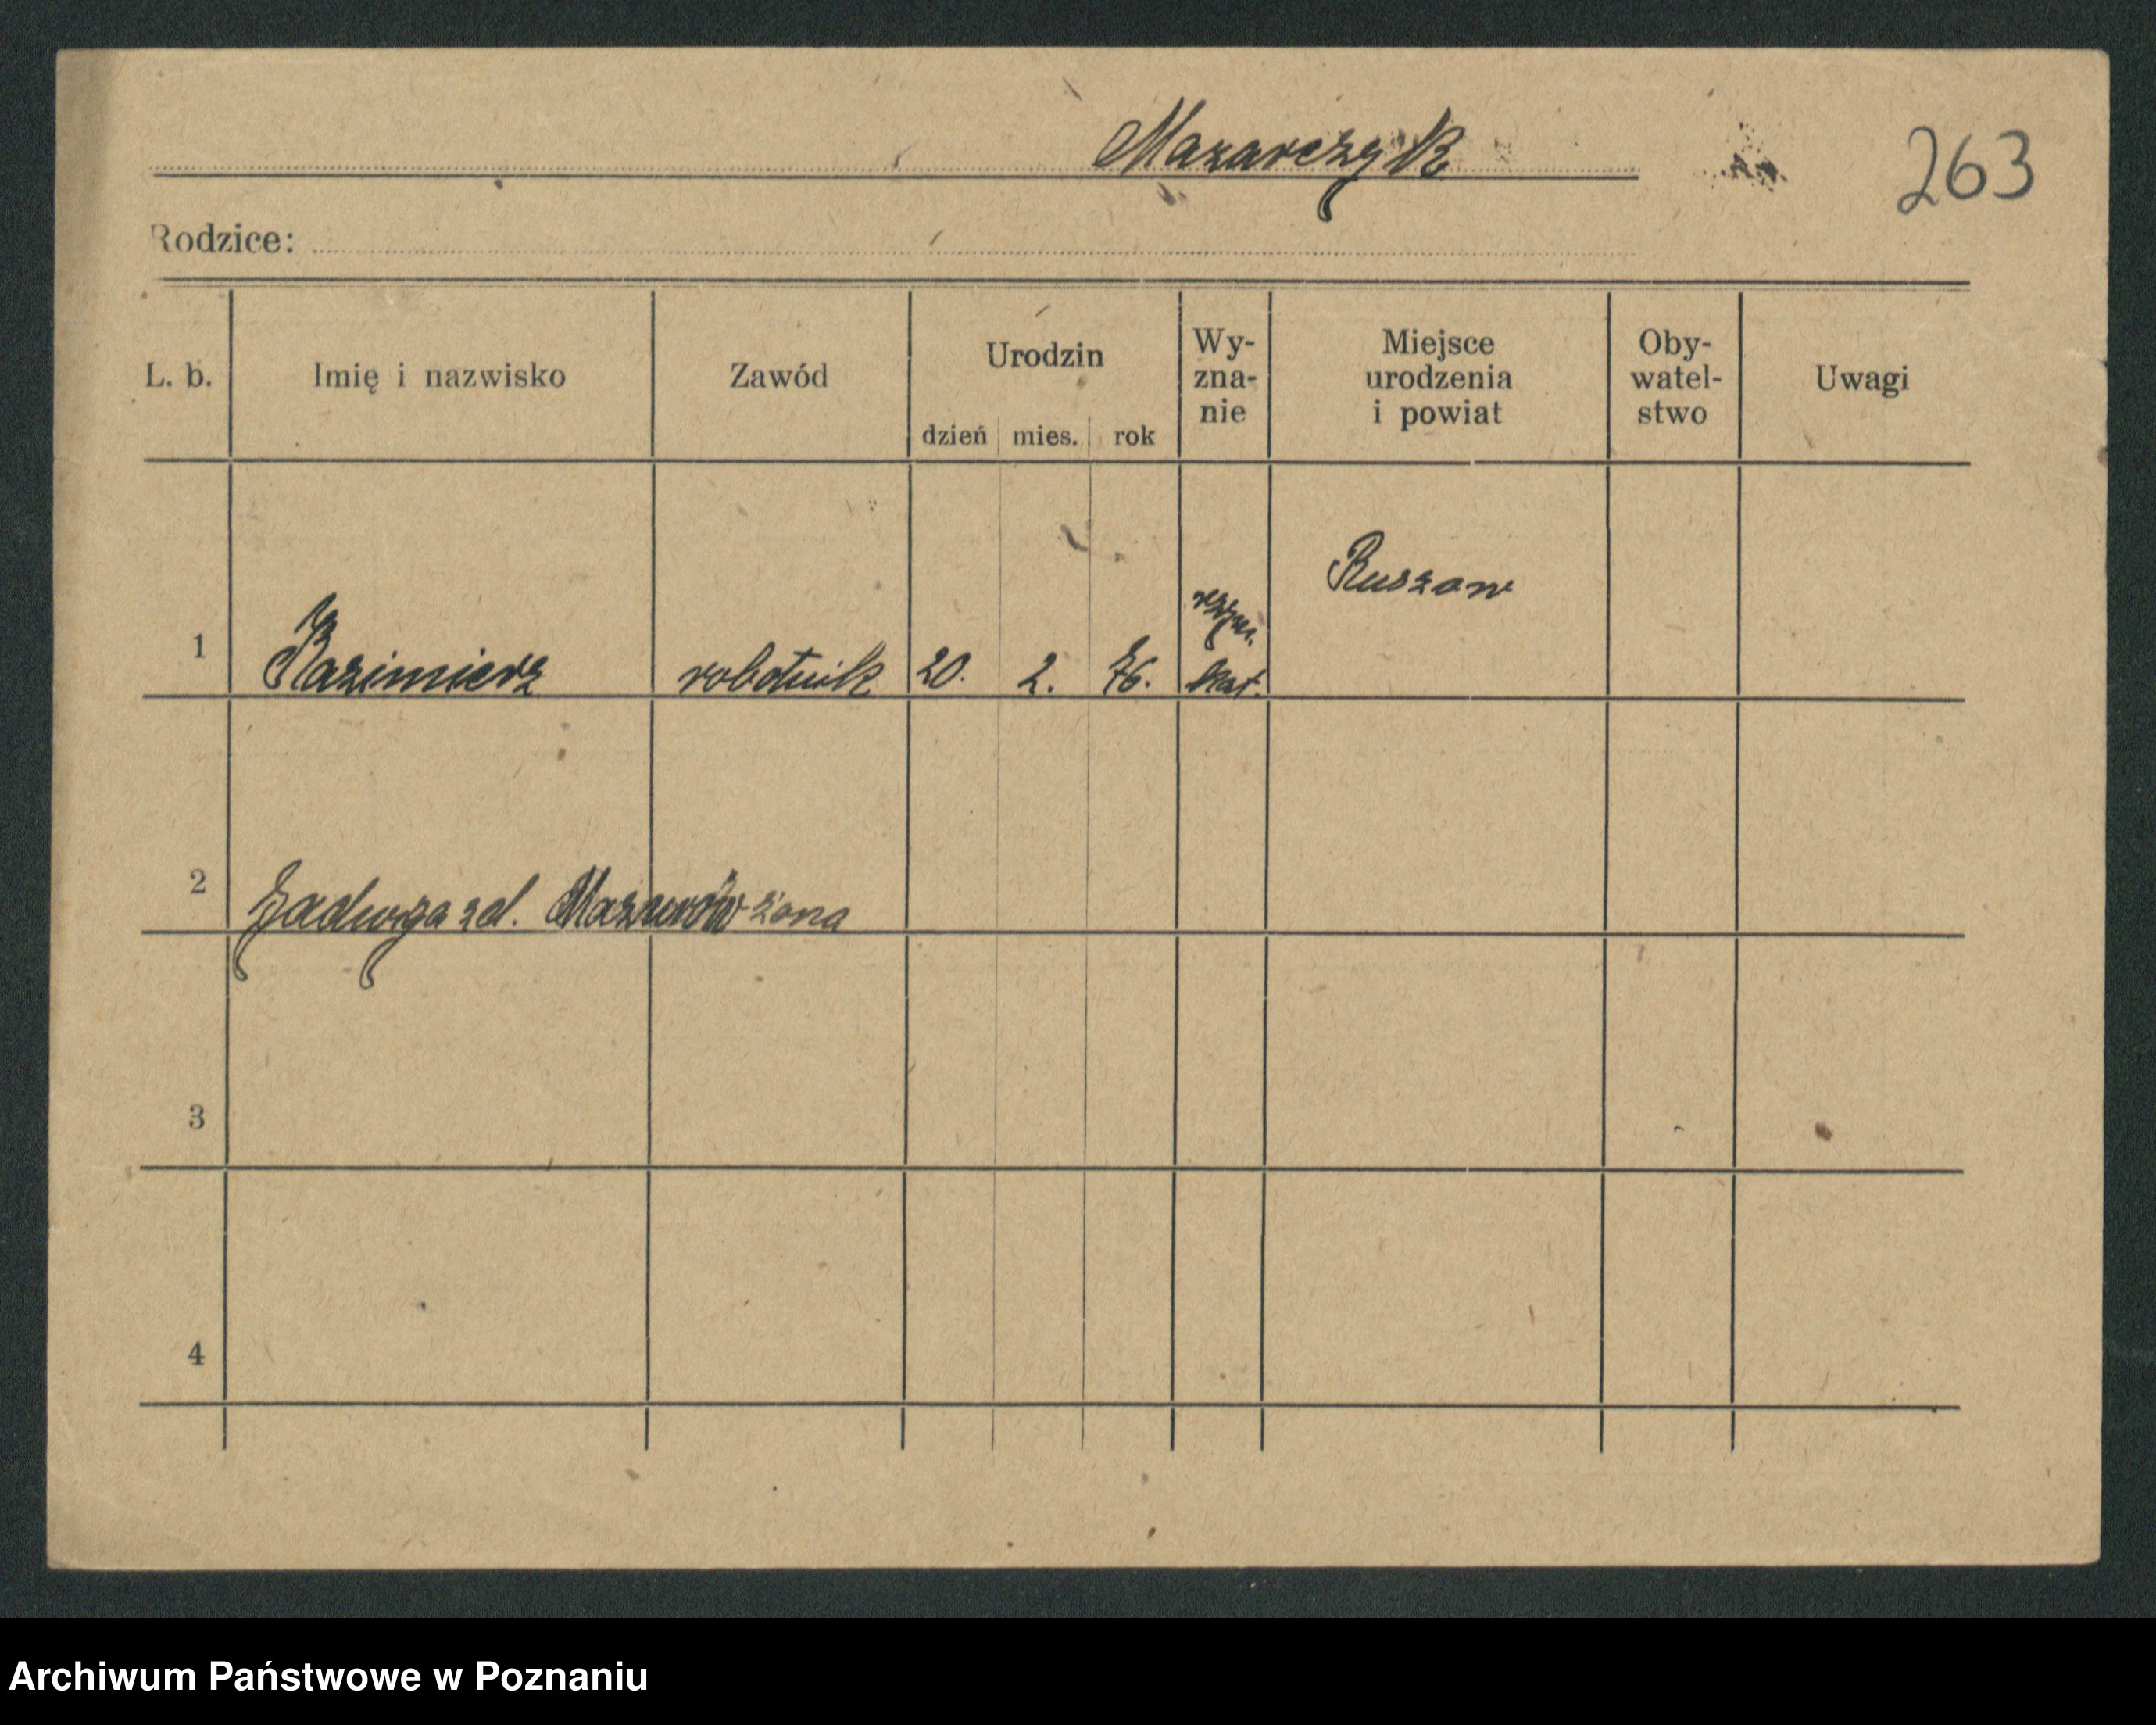 Mazarczyk
263
Rodzice:
L. b. Imię i nazwisko Zawód Urodzin dzień mies. rok Wy-zna-nie Miejsce urodzenia i powiat Oby-watel-stwo Uwagi
Ruszow
rzym.
1 Kazimierz robotnik 20. 2. 76. kat.
2 Jadwiga zd. żona
3
4
Archiwum Państwowe w Poznaniu